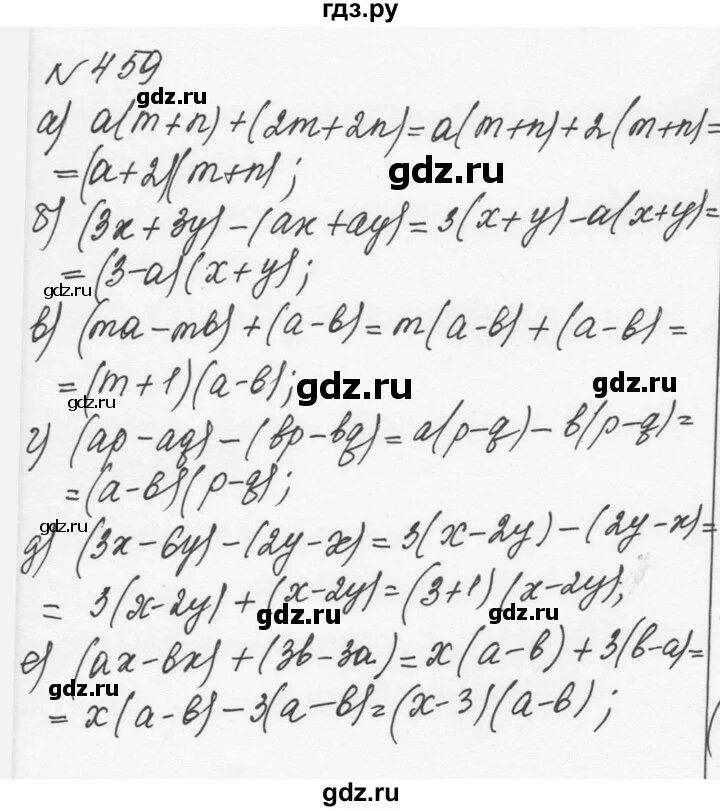 гдз.ру
№ 459
gdz.ru
а) a(m+n)+(2m+2n)=a(m+n)+2(m+n)=
gdz.ru
=(a+2)(m+n);
б) (3x+3y)-(ax+ay)=3(x+y)-a(x+y)=
=(3-a)(x+y);
gdz.ru
в) (ma-mb)+(a-b)=m(a-b)+(a-b)=
=(m+1)(a-b);
gdz.ru
gdz.ru
gdz.ru
г) (ap-aq)-(bp-bq)=a(p-q)-b(p-q)=
=(a-b)(p-q);
д) (3x-6y)-(2y-x)=3(x-2y)-(2y-x)=
=3(x-2y)+(x-2y)=(3+1)(x-2y);
gdz.ru
gdz.ru
е) (ax-bx)+(3b-3a)=x(a-b)+3(b-a)=
gdz.ru
=x(a-b)-3(a-b)=(x-3)(a-b);
gdz.ru
gdz.ru